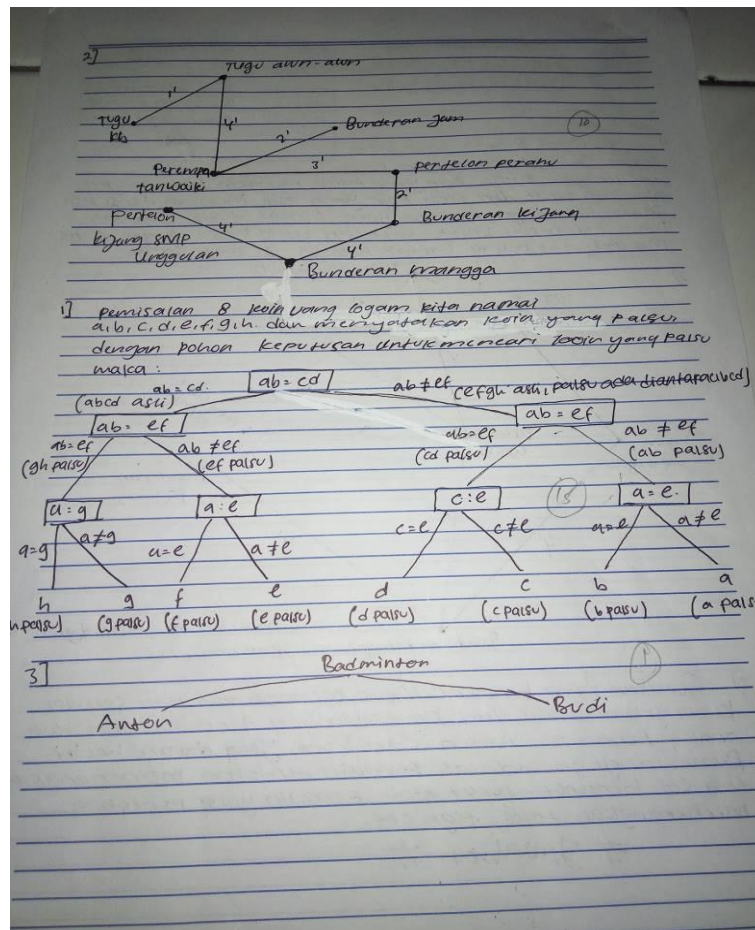 2]
Tugu alun-alun
1'
Tugu
kb
4'
2'
Bunderan Jam
10
Perempa
tanwaiki
3'
pertelon perahu
2'
pertelon
kijang SMP
Unggulan
4'
Bunderan kijang
4'
Bunderan mangga
1] pemisalan 8 koin uang logam kita namai
a, b, c, d, e, f, g, h. dan menyatakan koin yang palsu,
dengan pohon keputusan untuk mencari koin yang palsu
maka :
ab = cd.
(abcd asli)
ab = cd
ab ≠ ef
(efgh asli, palsu ada diantara abcd)
ab = ef
ab = ef
ab = ef
(gh palsu)
ab ≠ ef
(ef palsu)
ab = ef
(cd palsu)
ab ≠ ef
(ab palsu)
a = g
a : e
c : e
15
a = e.
a = g
a ≠ g
a = e
a ≠ e
c = e
c ≠ e
a = e
a ≠ e
h
g
f
e
d
c
b
a
(g palsu)
(f palsu)
(e palsu)
(d palsu)
(c palsu)
(b palsu)
(a palsu
3]
Badminton
1
Anton
Budi